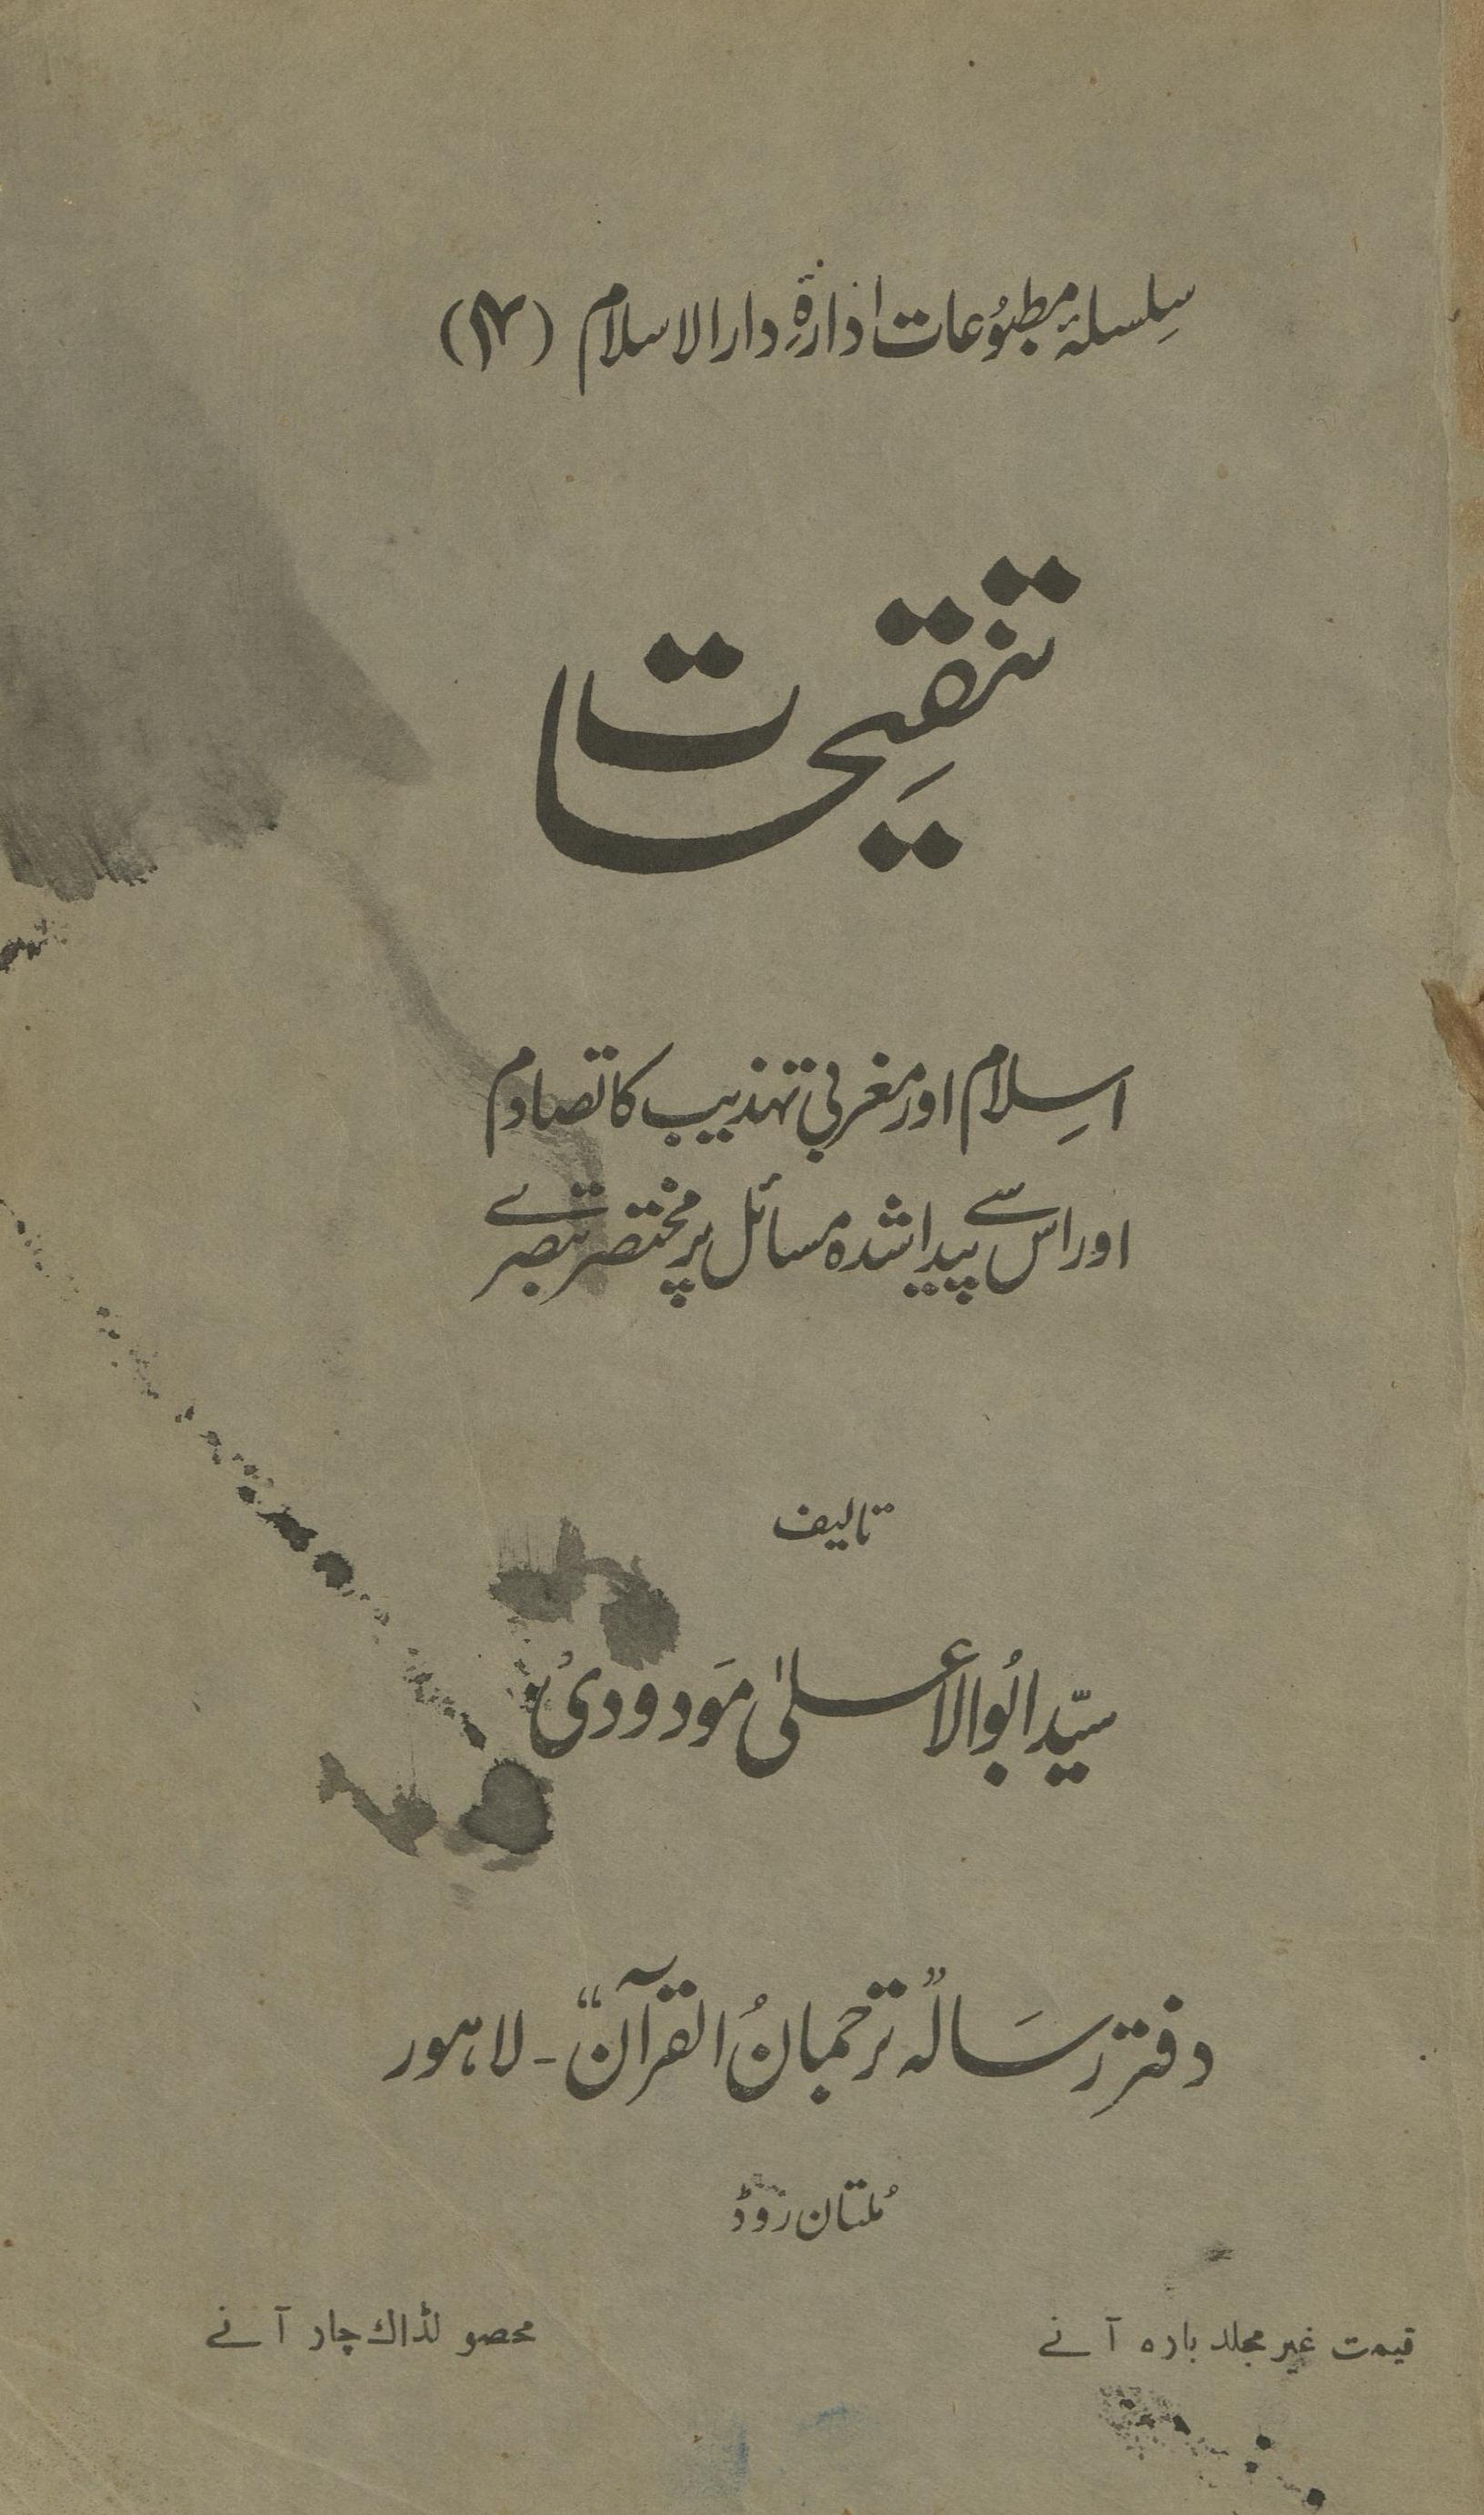 سِلسلۂ مطبُوعات ادارۂِ دارالاسلام
تنقِیحات
اسِلام اور مغربی تہذیب کا تصادم
اور اس سے پیدا شدہ مسائل پر مختصر تبصرے
تالیف
سیّد ابُوالاعلیٰ مَودودی
دفتر رِسَالہ ”ترجمانُ القرآن“ - لاہور
مُلتان روڈ
قیمت غیر مجلد بارہ آنے
محصولڈاک چار آنے